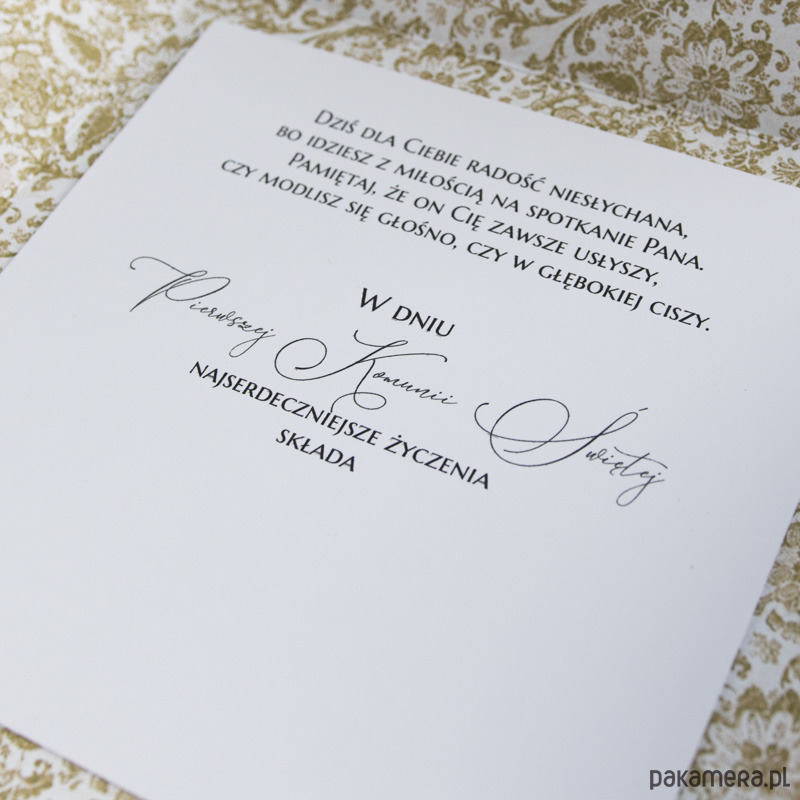 Dziś dla Ciebie radość niesłychana,
bo idziesz z miłością na spotkanie Pana.
Pamiętaj, że on Cię zawsze usłyszy,
czy modlisz się głośno, czy w głębokiej ciszy.
W dniu
Pierwszej Komunii Świętej
najserdeczniejsze życzenia
składa
pakamera.pl